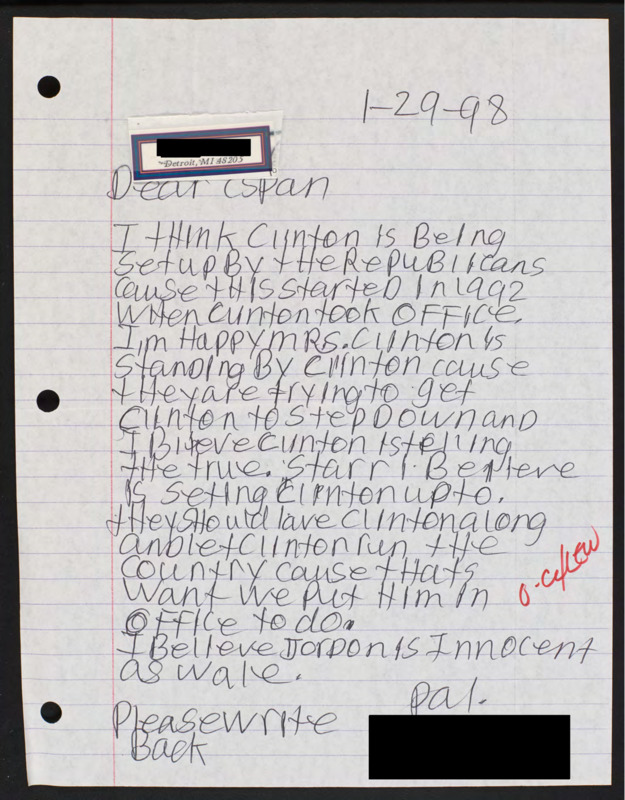 1-29-98
Detroit, MI 48203
Dear Cspan
I think Clinton is Being
setup By the Republicans
cause this started in 1992
when Clinton took OFFICE.
I'm Happy mrs. Clinton is
standing By Clinton cause
they are trying to get
Clinton to step Down and
I Blieve Clinton is telling
the true. Starr I Believe
is seting Clinton up to.
they should lave Clinton along
and let Clinton run the
country cause thats
want we put Him in
OFFICE to do.
I Believe Jordon is Innocent
as wale.
pal.
Please write
Back